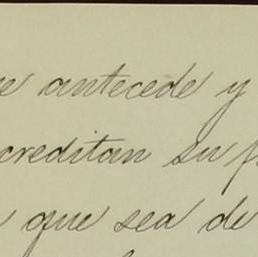 e antecede y
creditan su f
que sea de